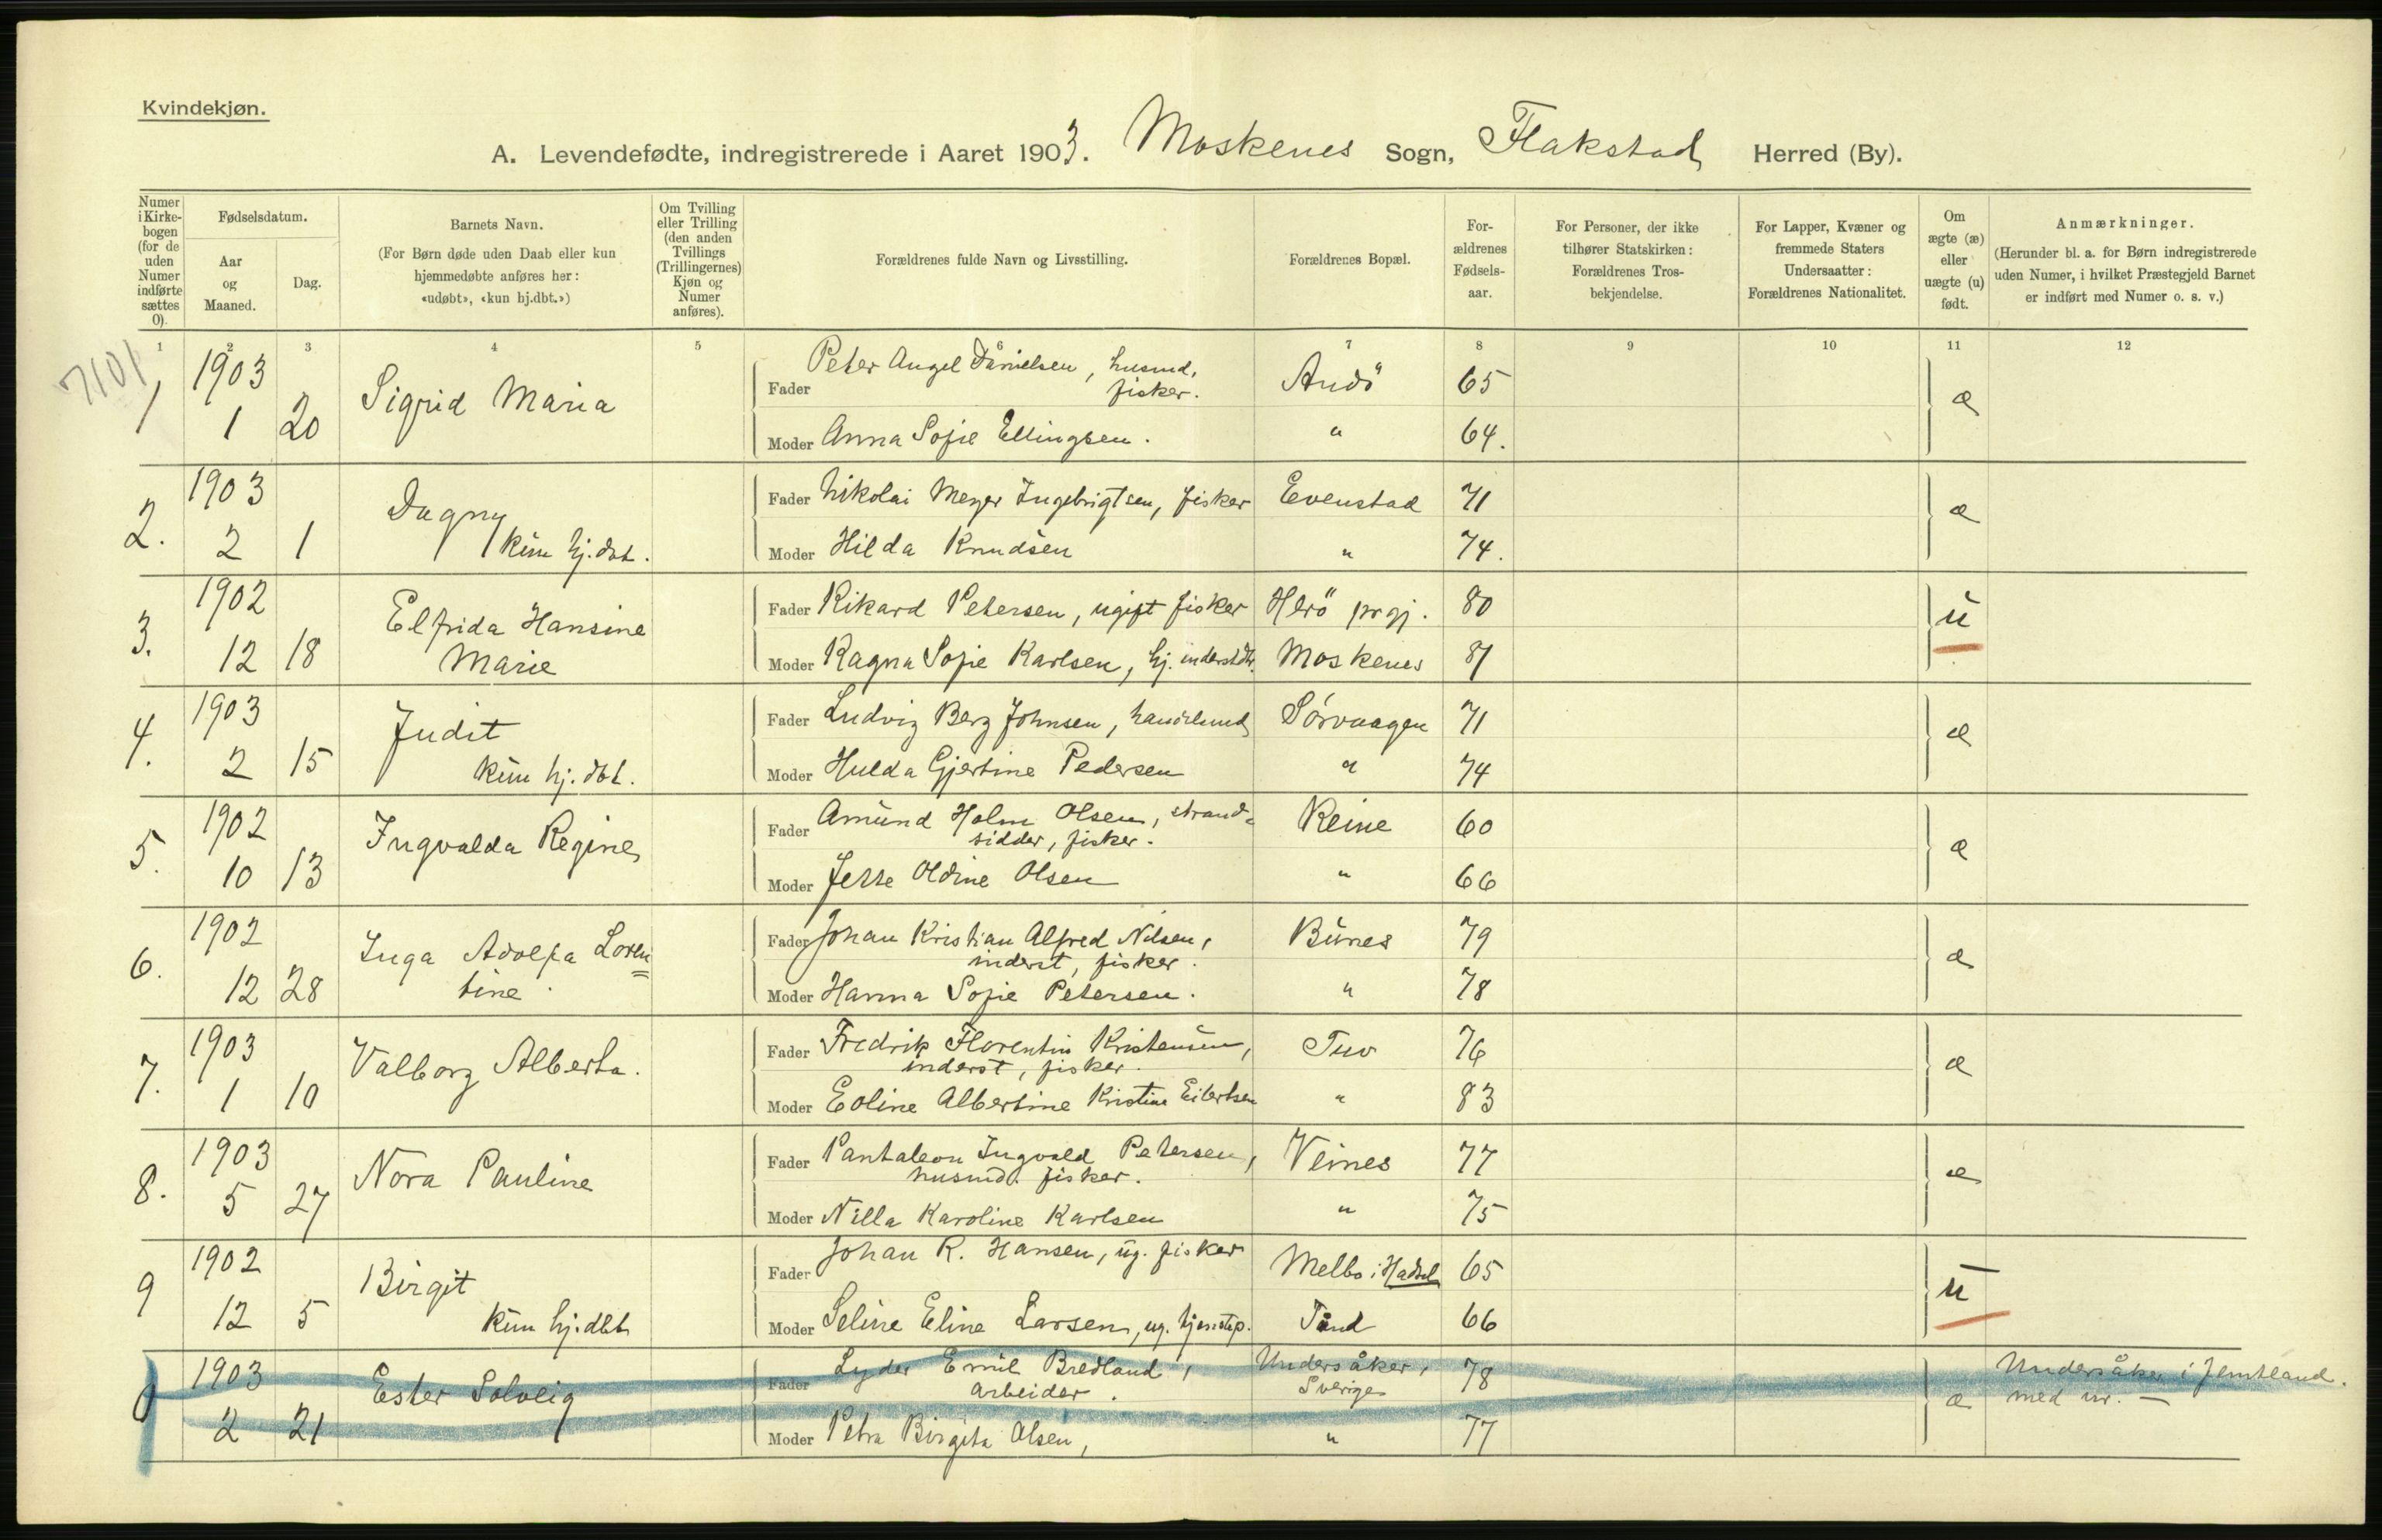 Kvindekjøn.
A. Levendefødte, indregistrerede i Aaret 1903. Moskenes Sogn, Flakstad Herred (By).
Numer i Kirkebogen (for de uden Numer indførte sættes 0).
Fødselsdatum.
Aar og Maaned.
Dag.
Barnets Navn.
(For Børn døde uden Daab eller kun hjemmedøbte anføres her: «udøbt», «kun hj.dbt.»)
Om Tvilling eller Trilling (den anden Tvillings (Trillingernes) Kjøn og Numer anføres).
Forældrenes fulde Navn og Livsstilling.
Forældrenes Bopæl.
Forældrenes Fødselsaar.
For Personer, der ikke tilhører Statskirken: Forældrenes Trosbekjendelse.
For Lapper, Kvæner og fremmede Staters Undersaatter: Forældrenes Nationalitet.
Om ægte (æ) eller uægte (u) født.
Anmærkninger.
(Herunder bl. a. for Børn indregistrerede uden Numer, i hvilket Præstegjeld Barnet er indført med Numer o. s. v.)
1 2 3 4 5 6 7 8 9 10 11 12
7101
1 1903 1 20 Sigrid Maria
Fader Peter Angel Danielsen, husmd, fisker. Andö 65 æ
Moder Anna Sofie Ellingsen. " 64.
2. 1903 2 1 Dagny kun hj.dbt.
Fader Nikolai Meyer Ingebrigtsen, fisker Evenstad 71 æ
Moder Hilda Knudsen " 74.
3. 1902 12 18 Elfrida Hansine Marie
Fader Rikard Petersen, ugift fisker Herö prgj. 80 u
Moder Ragna Sofie Karlsen, hj. inderstdtr. Moskenes 81
4. 1903 2 15 Judit kun hj. dbt.
Fader Ludvig Berg Johnsen, handelsmd Sørvaagen 71 æ
Moder Hulda Gjertine Pedersen " 74
5. 1902 10 13 Ingvalda Regine
Fader Amund Holm Olsen, strandsidder, fisker. Reine 60 æ
Moder Jette Oldine Olsen " 66
6. 1902 12 28 Inga Adolfa Lorentine.
Fader Johan Kristian Alfred Nilsen, inderst, fisker. Bunes 79 æ
Moder Hanna Sofie Petersen. " 78
7. 1903 1 10 Valborg Alberta.
Fader Fredrik Florentin Kristensen, inderst, fisker. Tuv 76 æ
Moder Eoline Albertine Kristine Eilertsen " 83
8. 1903 5 27 Nora Pauline
Fader Pantaleon Ingvald Petersen, husmd. fisker. Veines 77 æ
Moder Nilla Karoline Karlsen " 75
9 1902 12 5 Birgit kun hj.dbt
Fader Johan R. Hansen, ug. fisker Melbo i Hadsel 65 u
Moder Seline Eline Larsen, ug. tjenestep. Tind 66
0 1903 2 21 Ester Solveig
Fader Lyder Emil Bredland, arbeider. Undersåker, Sverige 78 æ Undersåker i Jemtland. med nr. —
Moder Petra Birgita Olsen, " 77